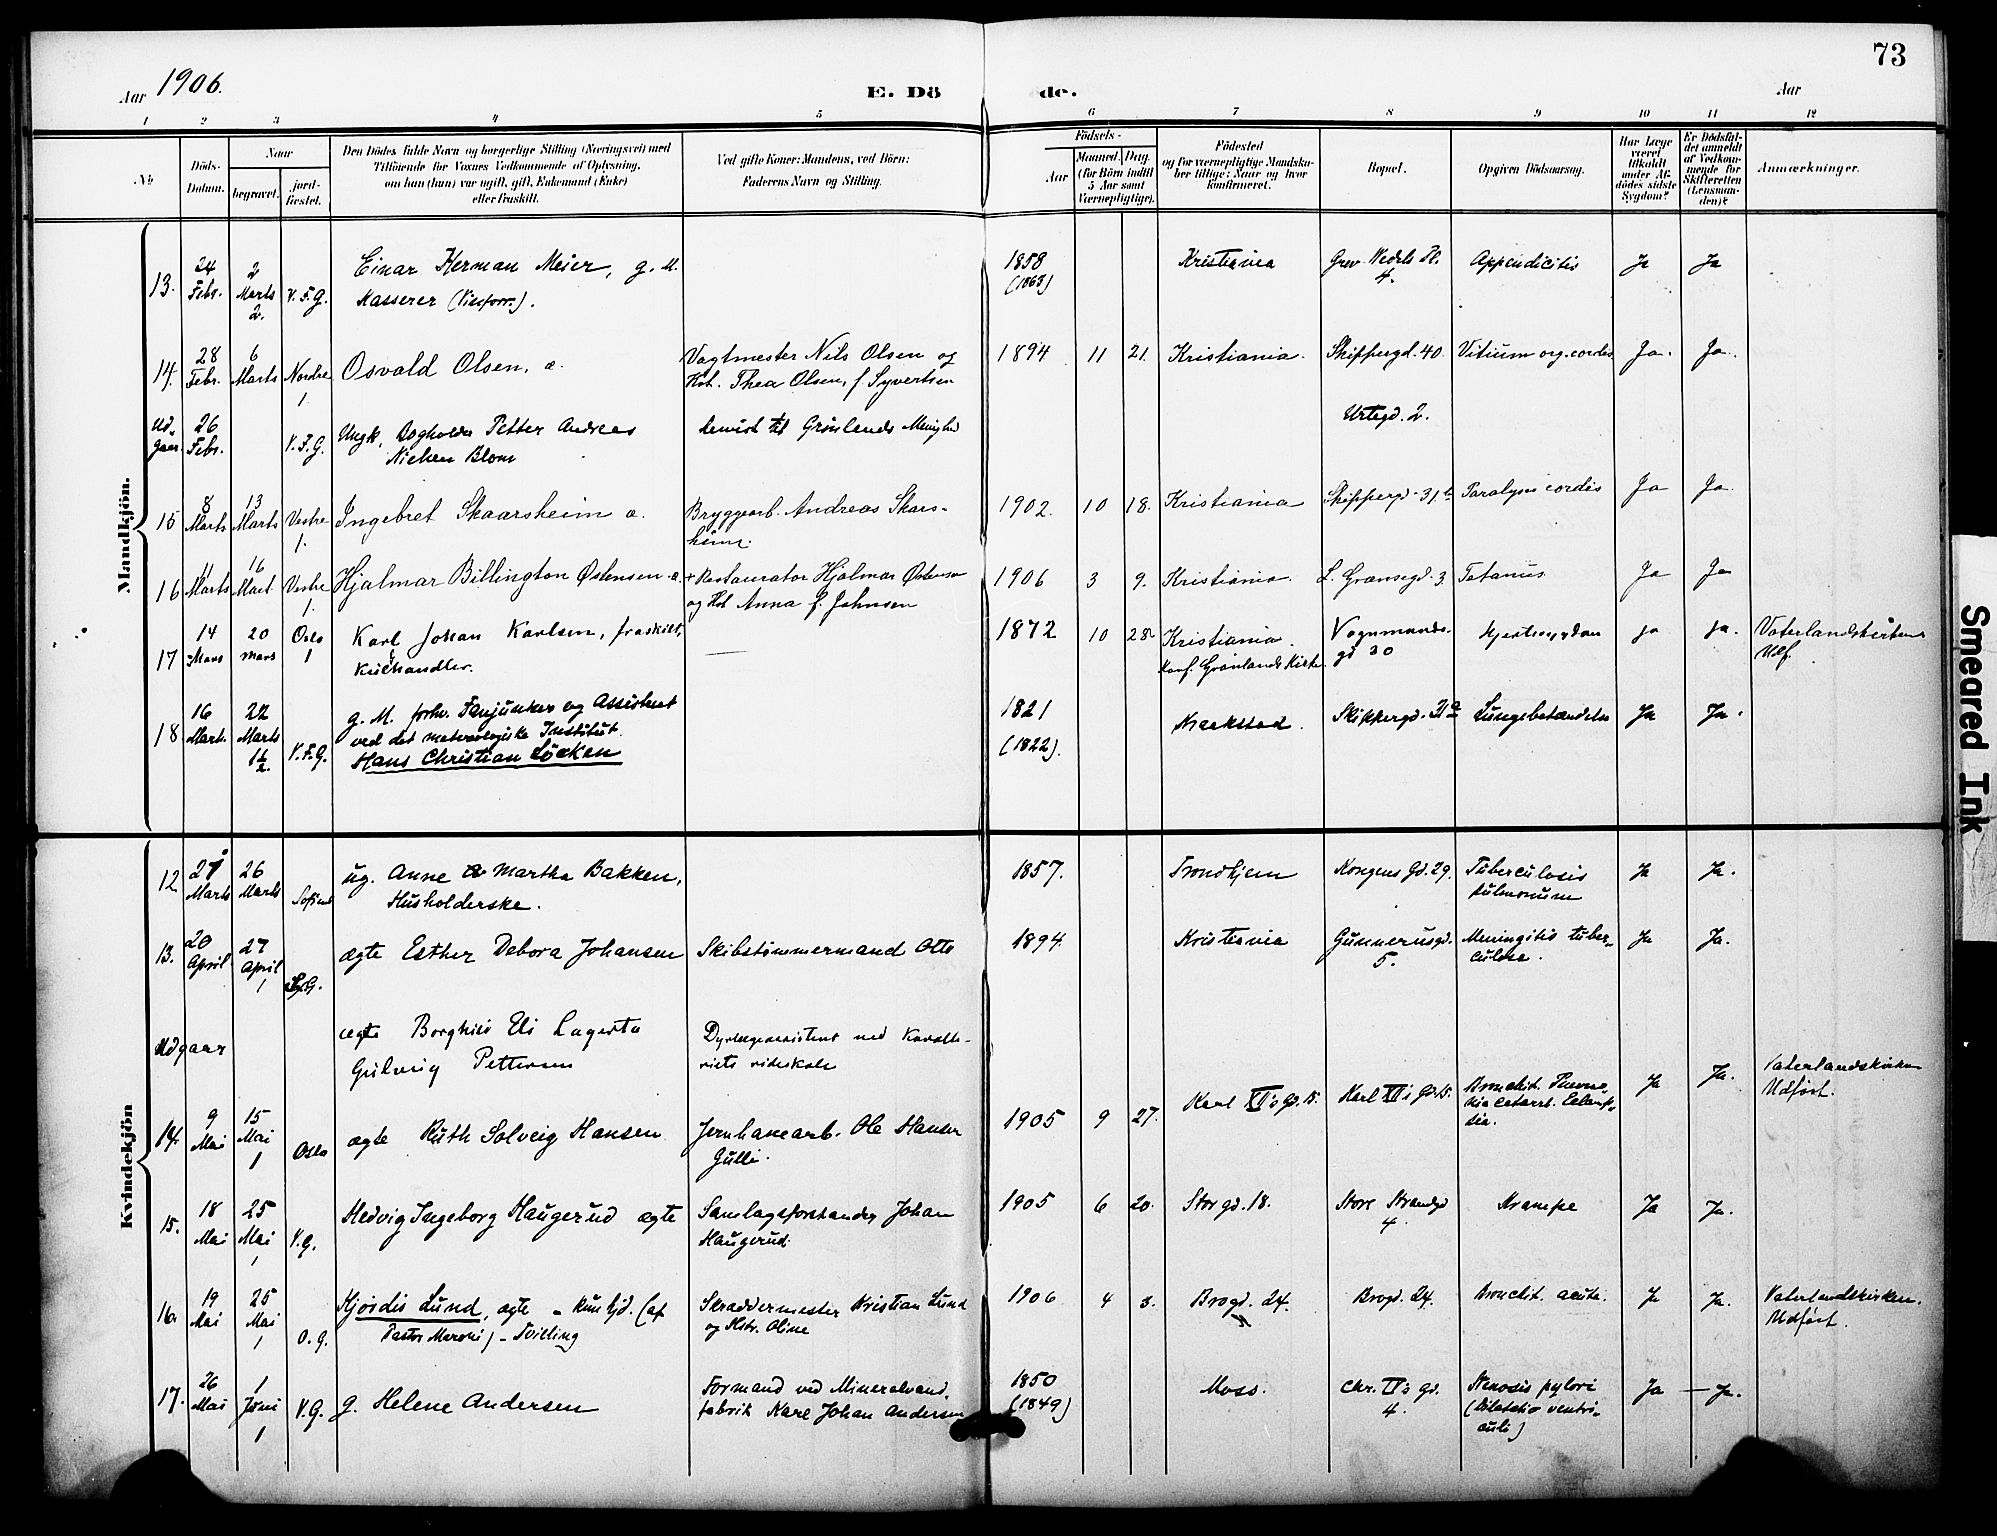 73
Aar 1906.
E. Dö de.
Aar
1 2 3 4 5 6 7 8 9 10 11 12
No
Döds-Datum.
Naar
begravet.
jord-fæstet.
Den Dödes fulde Navn og borgerlige Stilling (Næringsvei) med
Tilföiende for Voxnes Vedkommende af Oplysning,
om han (hun) var ugift, gift, Enkemand (Enke)
eller fraskilt.
Ved gifte Koner: Mandens, ved Börn:
Faderens Navn og Stilling.
Födsels-
Aar
Maaned. Dag.
(for Börn indtil
5 Aar samt
Værnepligtige).
Födested
og for værnepligtige Mandska-
ber tillige: Naar og hvor
konfirmeret.
Bopæl.
Opgiven Dödsaarsag.
Har Læge
været
tilkaldt
under Af-
dödes sidste
Sygdom?
Er Dödsfal-
det anmeldt
af Vedkom-
mende for
Skifteretten
(Lensman-
den)?
Anmærkninger.
Mandkjön.
13. 24 Febr. 2 Marts 2. V.F.G. Einar Herman Meier, g. M.
Kasserer 1858 (1863) Kristiania Grev Wedels Pl. 4. Appendicitis Ja Ja
14. 28 Febr. 6 Marts Nordre 1. Osvald Olsen, æ. Vagtmester Nils Olsen og
Hst. Thea Olsen, f. Syvertsen 1894 11 21. Kristiania. Skippergd. 40. Vitium org. cordis Ja. Ja.
Udgaar 26 Febr. V.F.G. Ungk. Petter Andreas
Nielsen Blom henvist til Grönlands Menighed Urtegd. 2.
15 8 Marts 13 Marts Vestre 1. Ingebret Skaarsheim æ. Bryggearb. Andreas Skars-
heim. 1902. 10 18. Kristiania Skippergd. 31b Paralysis cordis Ja Ja
16 11 Marts 16 Mart. Vestre 1. Hjalmar Billington Østensen æ. + Restauratør Hjalmar Østensen
og Hst Anna f. Johnsen 1906 3 9. Kristiania. L. Grænsegd. 3 Tetanus. Ja Ja
17 14 Mars 20 mars Oslo 1 Karl Johan Karlsen, fraskilt,
Kulhandler. 1872 10 28 Kristiania.
Konf. Grönlands Kirke. Vognmands-
gd 30 Hjertesygdom ja ja. Vaterlandskirken
Udf.
18 16 Mart. 22 Marts 1½. V.F.G. g. M. forhv. Fanjunker og Assistent
ved det meteorologiske Institut
Hans Christian Löcken 1821 (1822). Skippergd. 31a Lungebetændelse Ja Ja.
Kvindekjön
12. 21 Marts 26 Marts ug. Anne Martha Bakken,
Husholderske. 1857. Trondhjem Kongens Gd. 29. Tuberculosis
pulmonum Ja Ja.
13. 20 April 27 April 1 ægte Esther Debora Johansen Skibstömmermand Otto 1894. Kristiania Gunnerusgd.
5. Meningitis tuber-
culosa. Ja Ja.
Udgaar ægte Borghild Eli Lagerta
Pettersen Dyrlægeassistent ved Kavalle-
riets rideskole
14. 9 Mai 15 Mai 1 Oslo ægte Ruth Solveig Hansen Jernbanearb. Ole Hansen
Gulli. 1905 9 27. Karl XII's Gd. 15. Karl XII's Gd. 15. Bronchit. Pneumo-
nia catarrh. Eclamp-
sia. Ja Ja. Vaterlandskirken
Udfört.
15. 18 Mai 25 Mai 1 V.G. Hedvig Ingeborg Haugerud ægte Samlagsforstander Johan
Haugerud 1905 6 20. Storgd. 18. Store Strandgd
4. Krampe Ja Ja.
16. 19 Mai 25 Mai 1 O.G. Hjördis Lund, ægte - hun hjd. (af
Pastor) - Tvilling Skræddermester Kristian Lund
og Hstr. Oline 1906 4 3. Brogd. 24. Brogd. 24. Bronchit. acuta. Ja Ja. Vaterlandskirken.
Udfört.
17. 26 Mai 1 Juni 1 V.G. g. Helene Andersen Formand ved Mineralvand-
fabrik Karl Johan Andersen 1850 (1849) Moss. Chr. IV's Gd.
4. Stenosis pylori
(Dilatatio ventri-
culi) Ja — Ja.
Smeared Ink